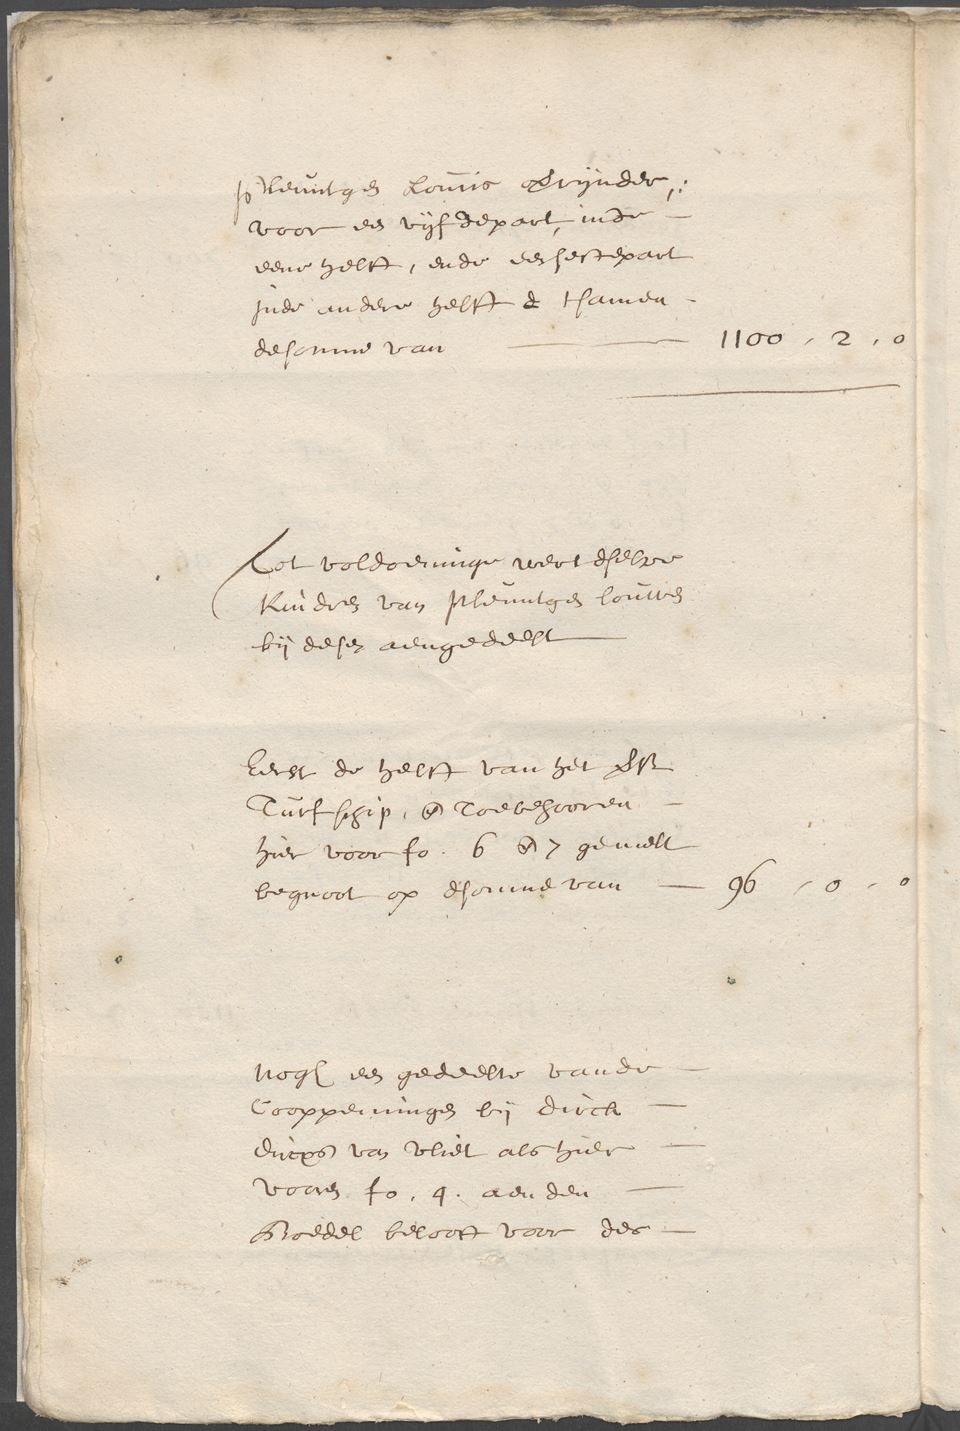 pleuntgen Louris
voor een vijfdepart, inde
eene helft, ende een sestepart
inde andere helft & tsamen
de somme van 1100 , 2 , 0
Tot voldoeninge wert dselve
kindren van pleuntgen louries
bij desen aengedeelt
Eerst de helft van het
Turfschip, en Toebehooren
hier voor fo. 6 en 7 gemelt
begroot op dsomme van 96 , 0 , 0
Noch een gedeelte vande
Cooppenningen bij Dirck
Dircxs van vliet als hier
vooren fo. 4. aen den
Boedel belooft voor des